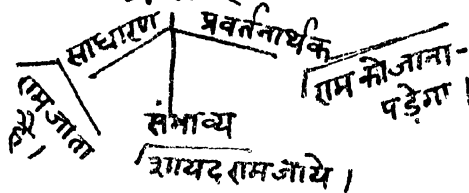 साधारण
प्रवर्तनार्थक
राम जाता
है।
संभाव्य
शायद राम जाये।
राम को जाना-
पड़ेगा।